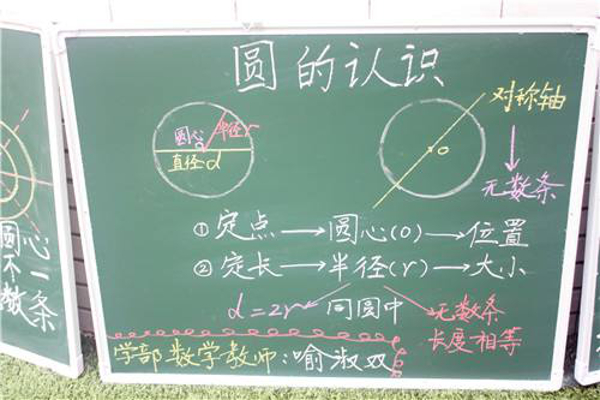 圆的认识
圆心 半径r
o
直径d
对称轴
o
无数条
①定点→圆心(o)→位置
②定长→半径(r)→大小
d=2r 同圆中 无数条
长度相等
学部数学教师:喻淑双
圆心
不一
数条